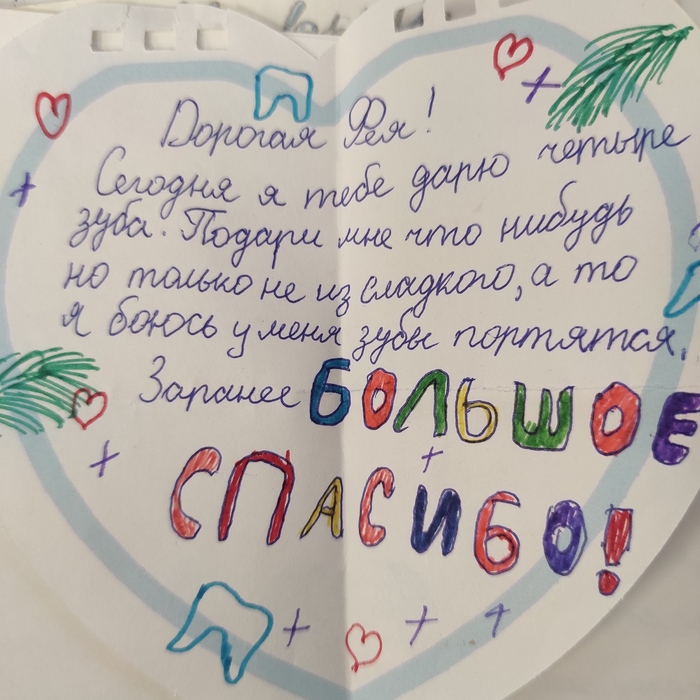 Дорогая Фея!
Сегодня я тебе дарю четыре
зуба. Подари мне что нибудь
но только не из сладкого, а то
я боюсь у меня зубы портятся.
Заранее БОЛЬШОЕ
СПАСИБО!